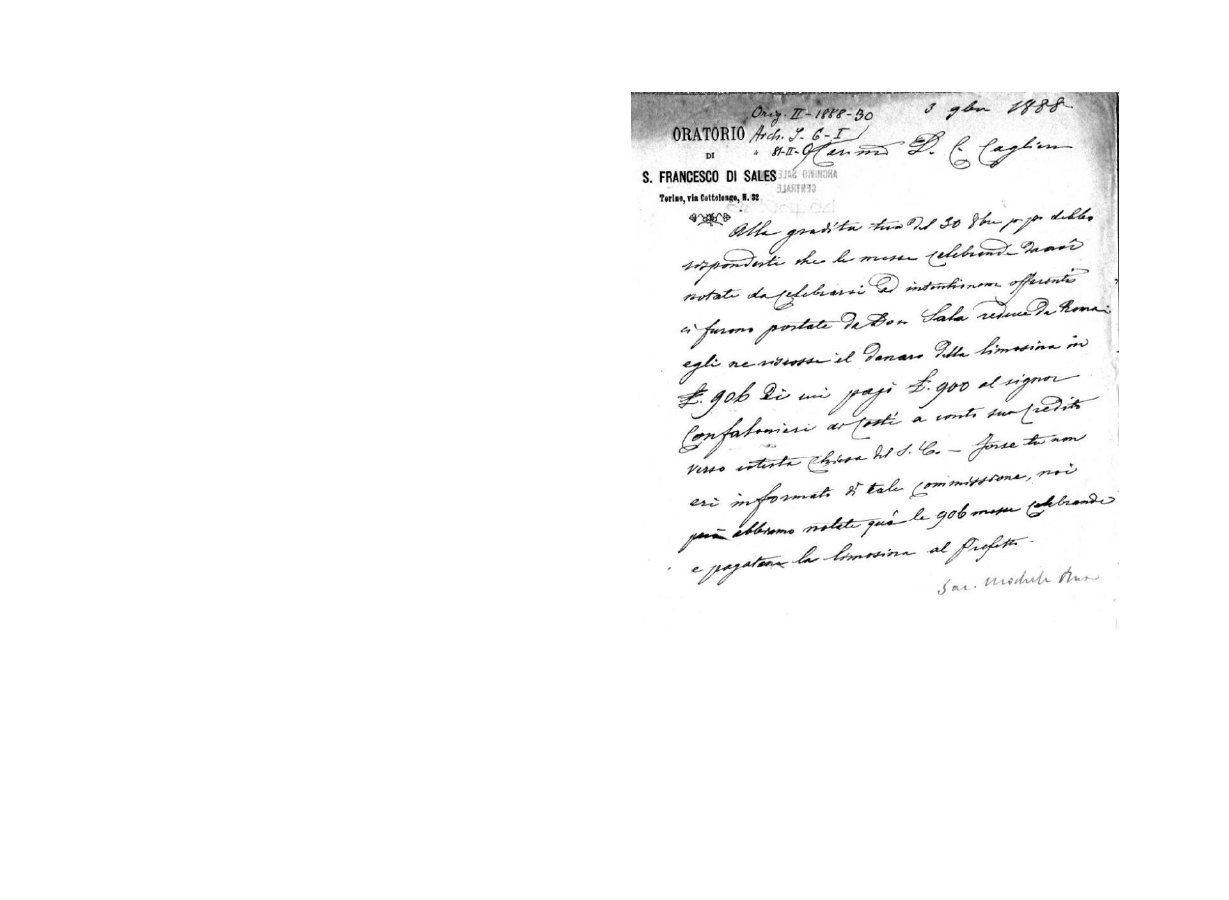 Orig. II-1888-30
3 9bre 1888
ORATORIO
Arch. S. C-I
DI
" 81-II-
Carmo D. C. Cagliero
S. FRANCESCO DI SALES
ARCHIVIO SALE
CENTRALE
Torino, via Cottolengo, N. 32
Alla gradita tua del 30 8bre p. p. debbo
risponderti che le messe celebrande da noi
notate da celebrarsi ad intentionem offerentis
ci furono portate da Don Sala reduce da Roma:
egli ne riscosse il danaro della limosina in
£. 906 di cui pagò £. 900 al signor
Confalonieri di costì a conto suo credito
verso cotesta Chiesa del S. C. – forse tu non
eri informato di tale commissione, noi
però abbiamo notate quà le 906 messe celebrande
e pagatane la limosina al Prefetto.
Sac. Michele Rua